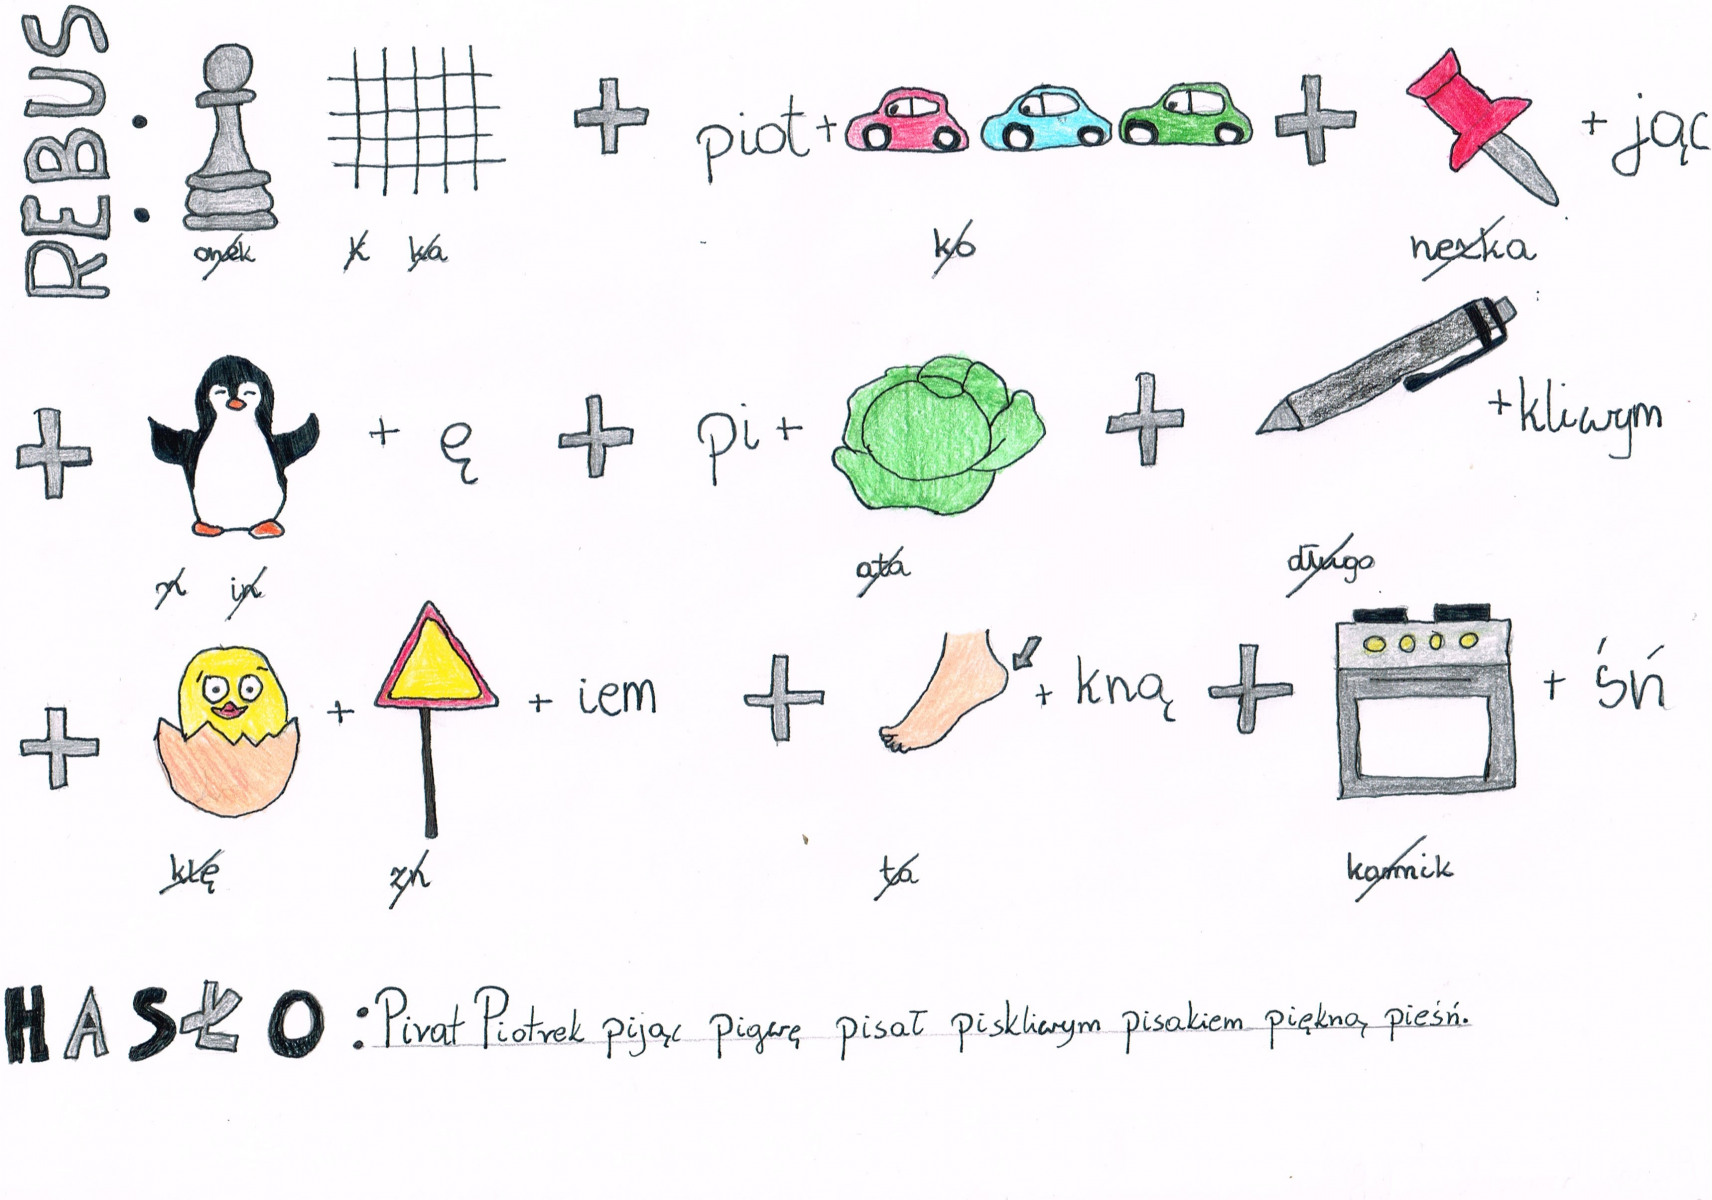 REBUS:
+ piot+ + + jąc
onek k ka ko nezka
+ + ę + pi + + +kliwym
n in ata długo
+ + + iem + + kną + + śń
kłę zn ta kamnik
HASŁO: Pirat Piotrek pijąc pigwę pisał piskliwym pisakiem piękną pieśń.